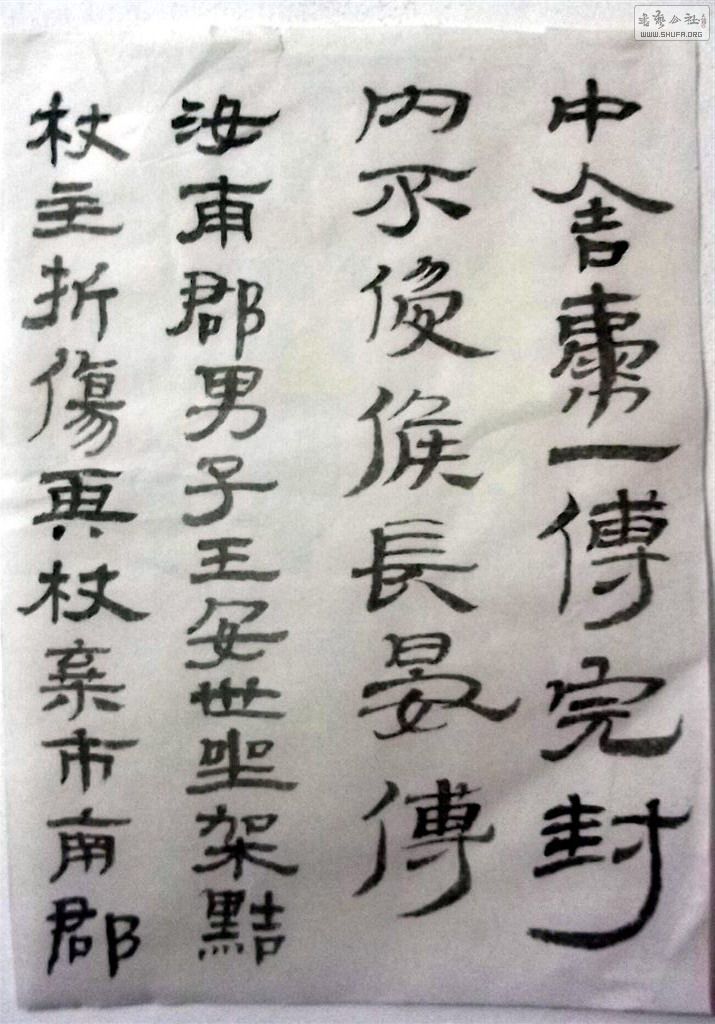 中舍橐一傳完封
内不侵候長晏傳
汝南郡男子王安世坐架黠
杖主折傷再杖棄市南郡
书艺公社
WWW.SHUFA.ORG